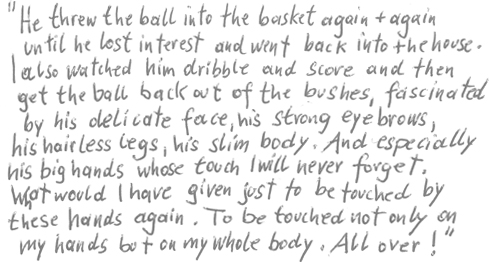 "He threw the ball into the basket again + again
until he lost interest and went back into the house.
I also watched him dribble and score and then
get the ball back out of the bushes, fascinated
by his delicate face, his strong eyebrows,
his hairless legs, his slim body. And especially
his big hands whose touch I will never forget.
What would I have given just to be touched by
these hands again. To be touched not only on
my hands but on my whole body. All over!"